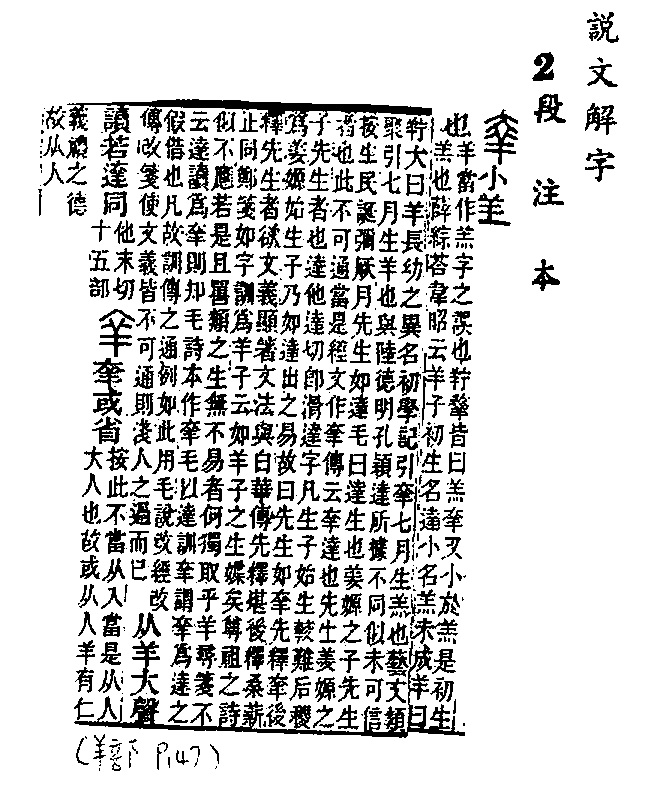 說文解字
2段注本
羍小羊
也羊當作羔字之誤也羜𦎧皆曰羔羍又小於羔是初生
羔也薛綜荅韋昭云羊子初生名達小名羔未成羊曰
羜大曰羊長幼之異名初學記引羍七月生羔也藝文類
聚引七月生羊也與陸德明孔穎達所據不同似未可信
按生民誕彌厥月先生如達毛曰達生也姜嫄之子先生
者也此不可通當是經文作羍傳云羍達也先生姜嫄之
子先生者也達他達切卽滑達字凡生子始生較難后稷
爲姜嫄始生子乃如達出之易故曰先生如羍先釋羍後
釋先生者欲文義顯著文法與白華傳先釋堪後釋桑薪
止同鄭箋如字訓爲羊子云如羊子之生媟矣尊祖之詩
似不應若是且嘼類之生無不易者何獨取乎羊尋箋不
云達讀爲羍則知毛詩本作羍毛以達訓羍謂羍爲達之
假借也凡故訓傳之通例如此用毛說改經改
傳改箋使文義皆不可通則淺人之過而已
从羊大聲
讀若達同
他末切
十五部
羍或省
按此不當从入當是从人
大人也故或从人羊有仁
義禮之德
故从人
(羊部下 P.147)